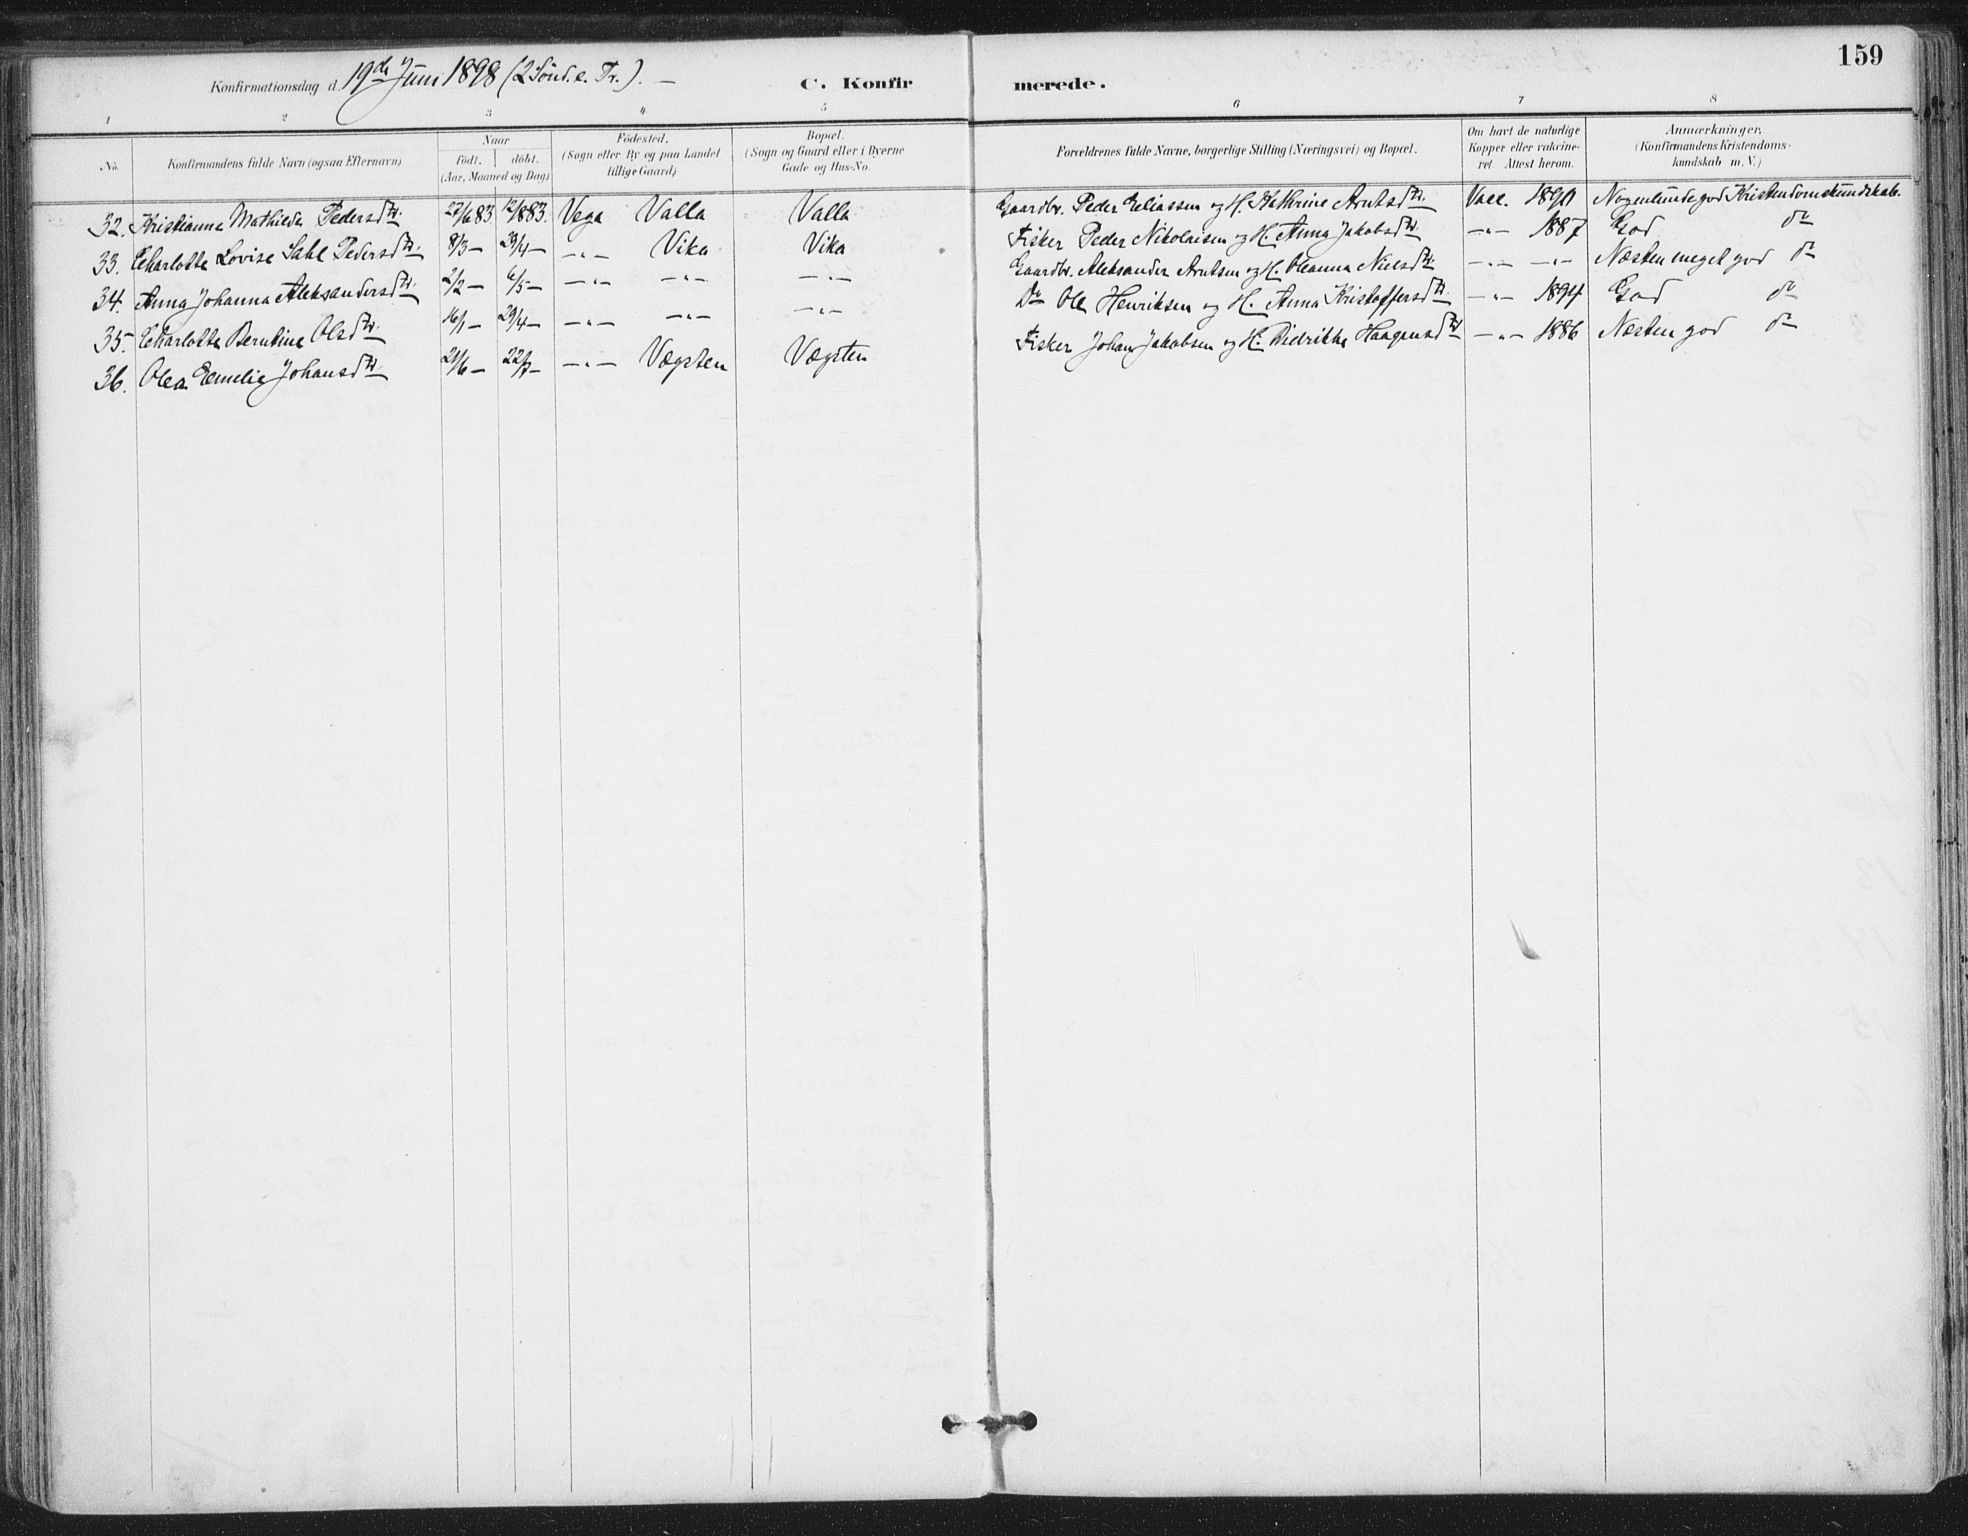 159
Konfirmationsdag d. 19de Juni 1898 (2 Sönd. e. Tr.). —
C. Konfirmerede.
1 2 3 4 5 6 7 8
No. Konfirmandens fulde Navn (ogsaa Efternavn) Naar født. døbt. (Aar, Maaned og Dag) Fødested. (Sogn eller By og paa Landet tillige Gaard) Bopæl. (Sogn og Gaard eller i Byerne Gade og Hus-No. Forældrenes fulde Navne, borgerlige Stilling (Næringsvei) og Bopæl. Om havt de naturlige Kopper eller vakcineret. Attest herom. Anmærkninger. (Konfirmandens Kristendomskundskab m. V.)
32. Kristianna Mathilde Pedersdtr. 27/6 83 12/8 83. Vega Valla Valla Gaardbr. Peder Eeliassen og H. Kathrine Arntsdtr. Vacc. 1890 Nogenlunde god Kristendomskundskab.
33. Charlotte Lovise Sahl Pedersdtr. 8/3 — 29/4 — —„— Vika Vika Fisker Peder Nikolaisen og H. Anna Jakobsdtr. —„— 1887 God do
34. Anna Johanna Aleksandersdtr. 2/2 — 6/5 — —„— —„— —„— Gaardbr. Aleksander Arntsen og H. Oleanna Nielsdtr. —„— —„— Næsten meget god do
35. Charlotte Berntine Olsdtr. 16/1 — 29/4 — —„— —„— —„— Do Ole Henriksen og H. Anna Kristoffersdtr. —„— 1894 God do
36. Olea Eemelie Johansdtr. 21/6 — 22/7 — —„— Vægsten Vægsten Fisker Johan Jakobsen og H. Didrikke Haagensdtr. —„— 1886 Næsten god do